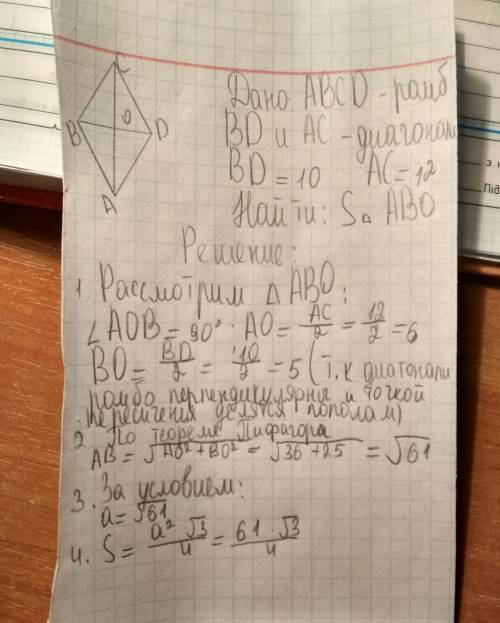 C
B
O
D
A
Дано: ABCD - ромб
BD и AC - диагонали
BD = 10 AC = 12
Найти: S△ ABO
Решение:
1. Рассмотрим △ ABO:
∠AOB = 90° · AO = AC/2 = 12/2 = 6
BO = BD/2 = 10/2 = 5 (т.к диагонали
ромба перпендикулярни и точкой
пересичения делятся пополам)
2. По теореме Пифагора
AB = √AO² + BO² = √36 + 25 = √61
3. За условием:
a = √61
4. S = a² √3/4 = 61 · √3/4
з к
Під